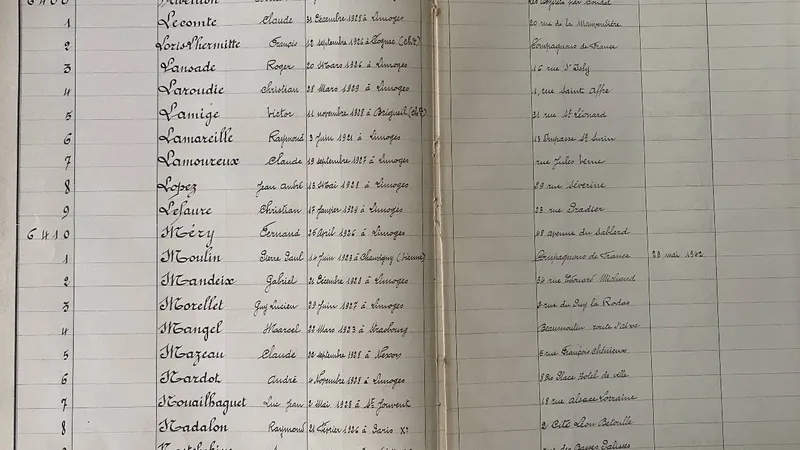 6400
1 Lecomte Claude 31 Décembre 1928 à Limoges 20 rue de la
2 Loris Lhermitte François 12 septembre 1926 à Cognac Compagnons de France
3 Lansade Roger 20 Mars 1926 à Limoges 16 rue d'Isly
4 Laroudie Christian 28 Mars 1929 à Limoges 1, rue Saint Affre
5 Lamige Victor 11 novembre 1928 à Brigueil 31 rue St Léonard
6 Lamareille Raymond 3 Juin 1921 à Limoges 13 Impasse St Surin
7 Lamoureux Claude 19 septembre 1927 à Limoges rue Jules Verne
8 Lopez Jean André 15 Mai 1928 à Limoges 29 rue Séverine
9 Lefaure Christian 17 Janvier 1929 à Limoges 23 rue Pradier
6410 Méry Fernand 26 Avril 1926 à Limoges 48 avenue du Sablard
1 Moulin Pierre Paul 14 Juin 1923 à Chauvigny (Vienne) Compagnons de France 29 mai 1942
2 Mandeix Gabriel Décembre 1928 à Limoges 34 rue Edouard Michaud
3 Morellet Guy Lucien 29 Juin 1927 à Limoges rue du Puy la Rodas
4 Mangel Marcel 22 Mars 1923 à Strasbourg Beaumoulin route d'Aixe
5 Mazeau Claude 22 septembre 1928 à Nexon 5 rue François Chénieux
6 Nardot André 4 Novembre 1928 à Limoges Place Hotel de ville
7 Nouailhaguet Luc Jean 2 Mai 1928 à St Jouvent 18 rue Alsace Lorraine
8 Nadalon Raymond 21 Février 1926 à Paris 2 Cité Léon Betoulle
rue des Basses Palisses